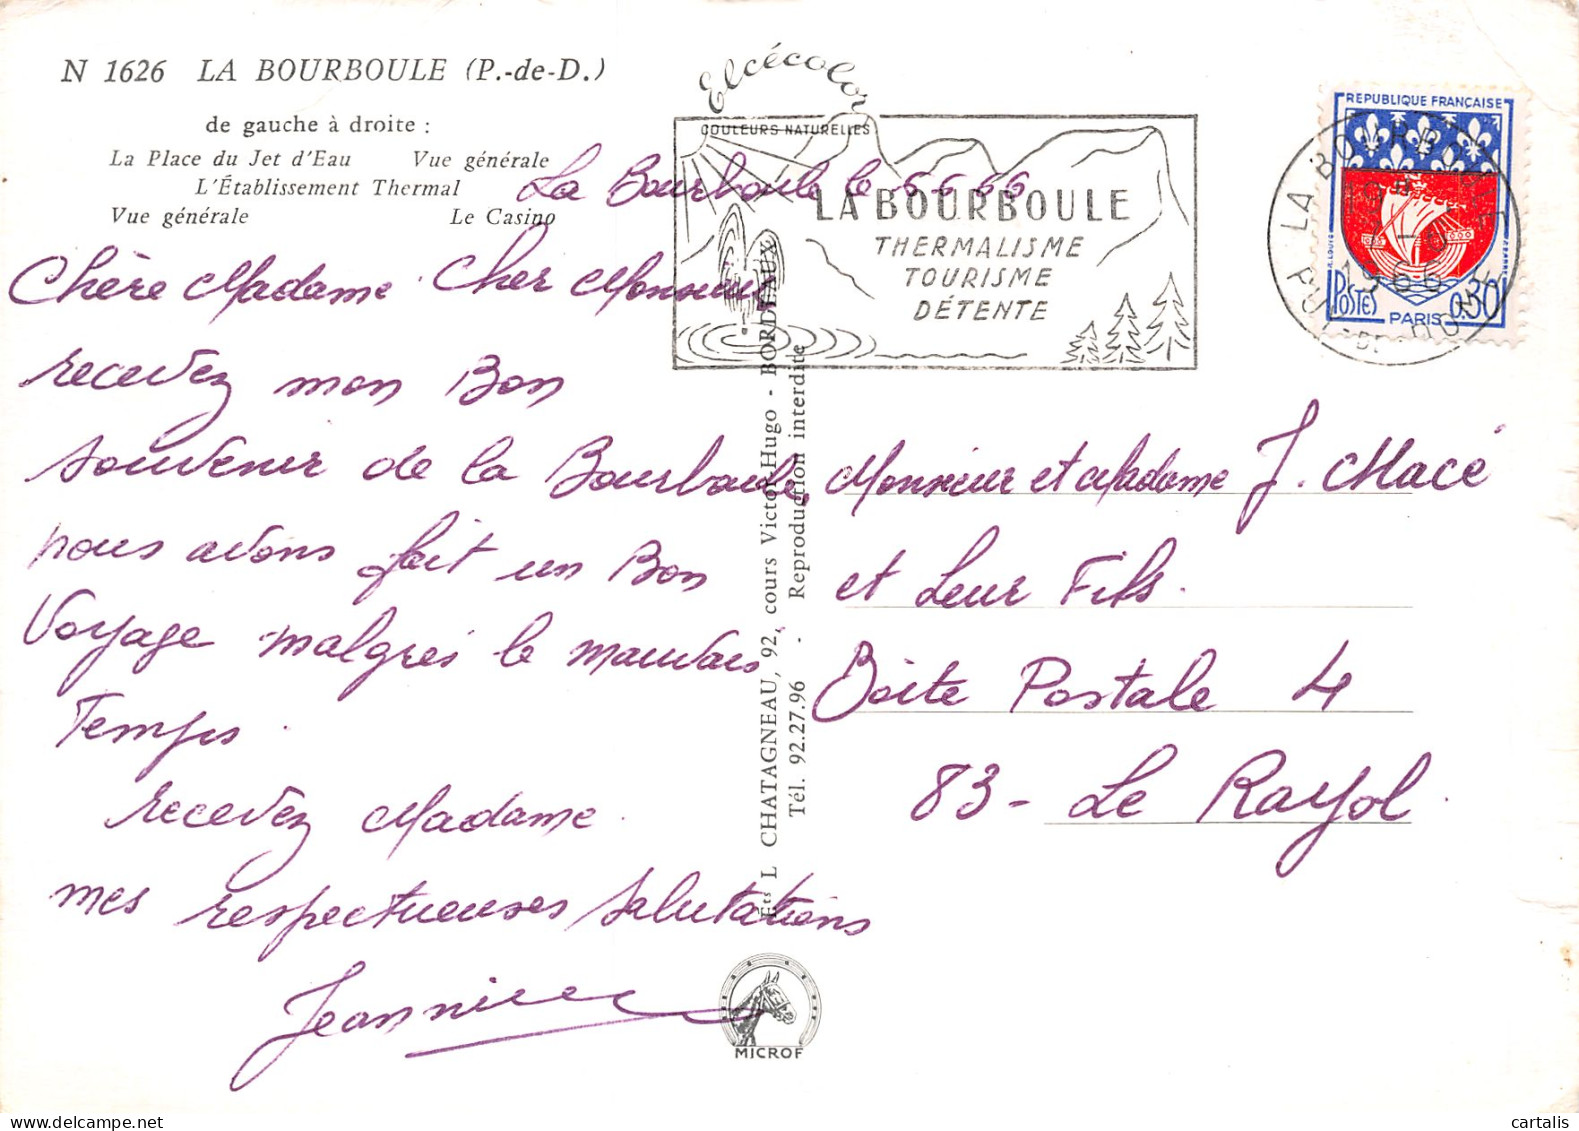 N 1626 LA BOURBOULE (P.-de-D.)
de gauche à droite :
La Place du Jet d'Eau Vue générale
L'Établissement Thermal
Vue générale Le Casino
Elcécolor
COULEURS NATURELLES
LA BOURBOULE
THERMALISME
TOURISME
DÉTENTE
REPUBLIQUE FRANÇAISE
POSTES 0,30
PARIS
LA BOURBOULE
1966
PUY-DE-DOME
La Bourboule le 6 6 66
Chère Madame Cher Monsieur
recevez mon Bon
souvenir de la Bourboule,
nous avons fait un Bon
Voyage malgrés le mauvais
Temps.
recevez Madame.
mes respectueuses salutations
Jeannine
Ets L CHATAGNEAU, 92, cours Victor-Hugo - BORDEAUX
Tél. 92.27.96 - Reproduction interdite
MICROF
Monsieur et Madame J. Macé
et Leur Fils.
Boite Postale 4
83 - Le Rayol.
cartalis - delcampe.net